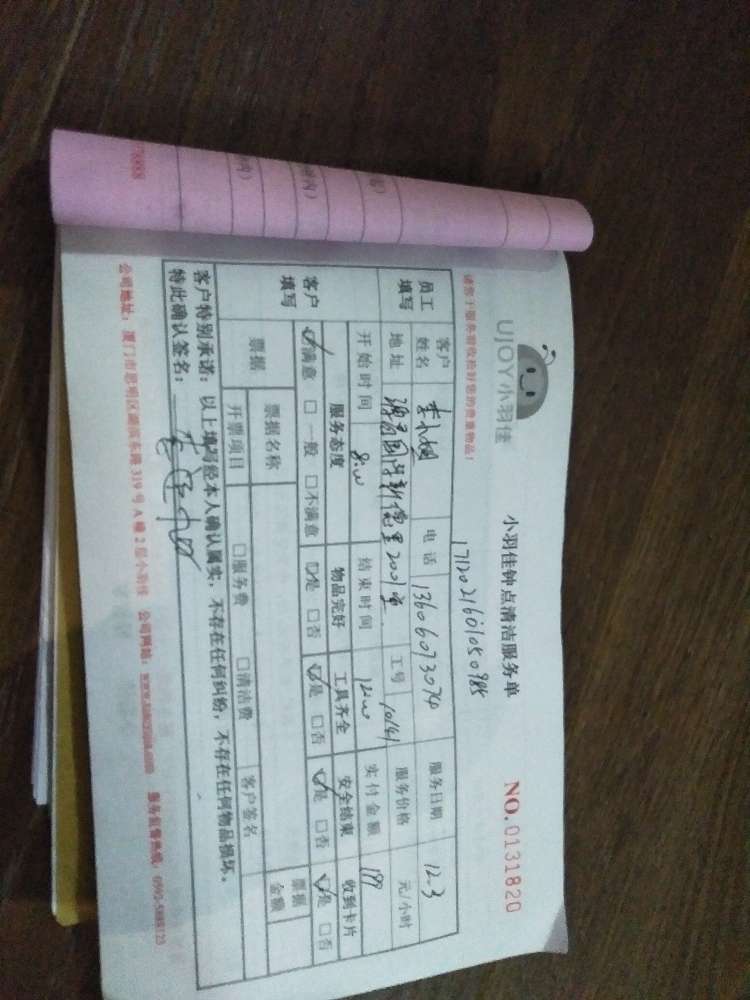 UJOY小羽佳
小羽佳钟点清洁服务单
NO.0131820
171202160105098５
请您于服务前收拾好您的贵重物品!
员工填写
客户姓名
电话
13606073074
服务日期
12.3
地址
2001室
工号
10141
服务价格
元/小时
开始时间
8:00
结束时间
12:00
实付金额
199
客户填写
服务态度
物品完好
工具齐全
安全结束
收到卡片
☑满意 □一般 □不满意
☑是 □否
☑是 □否
☑是 □否
☑是 □否
票据
票据名称
票据金额
开票项目
□服务费
□清洁费
客户签名
客户特别承诺:以上填写经本人确认属实,不存在任何纠纷,不存在任何物品损坏。
特此确认签名:
公司地址:厦门市思明区湖滨东路319号A幢2层小羽佳 公司网站: 服务监督热线: